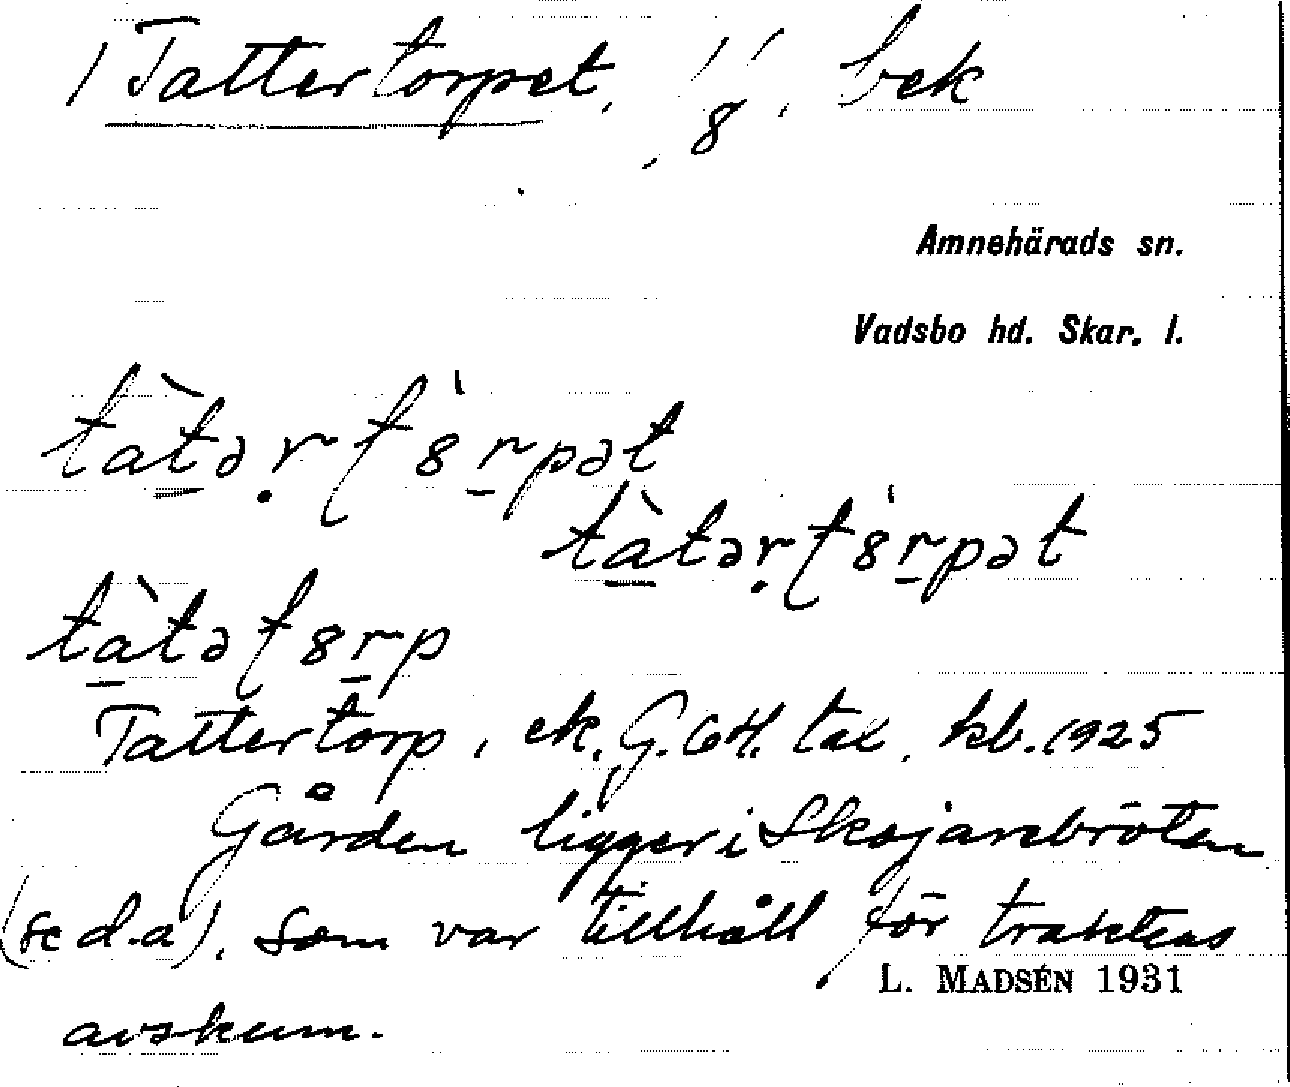 / Tattertorpet, // 8, bek
Amnehärads sn.
Vadsbo hd. Skar. l.
tàtəṛ t8̀ṟpət
tàtəṛ t8̀ṟpət
tàtə t8ṟp
Tattertorp, ek, G. 64. tax. kb. 1925
Gården ligger i Skojarebröten
(se d.a), som var tillhåll för traktens
L. MADSÉN 1931
avskum.